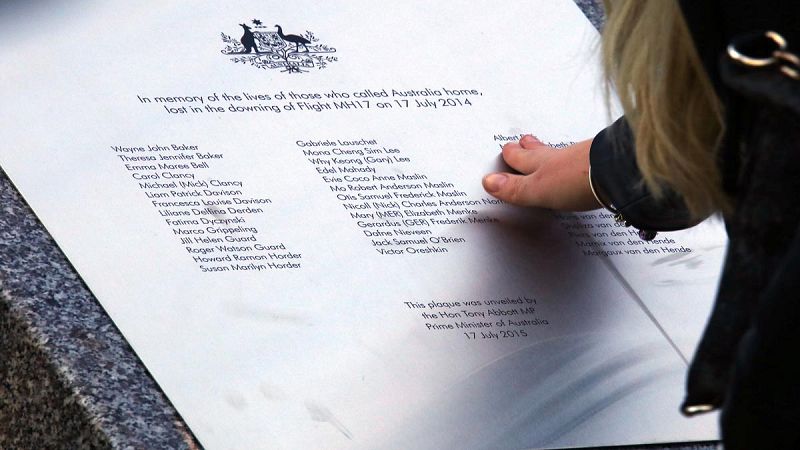 In memory of the lives of those who called Australia home,
lost in the downing of Flight MH17 on 17 July 2014
Wayne John Baker
Theresa Jennifer Baker
Emma Maree Bell
Carol Clancy
Michael (Mick) Clancy
Liam Patrick Davison
Francesca Louise Davison
Liliane Delfina Derden
Fatima Dyczynski
Marco Grippeling
Jill Helen Guard
Roger Watson Guard
Howard Ramon Horder
Susan Marilyn Horder
Gabriele Lauschet
Mona Cheng Sim Lee
Why Keong (Gary) Lee
Edel Mahady
Evie Coco Anne Maslin
Mo Robert Anderson Maslin
Otis Samuel Frederick Maslin
Nicoll (Nick) Charles Anderson Norris
Mary (MEK) Elizabeth Menke
Gerardus (GEK) Frederik Menke
Dafne Nieveen
Jack Samuel O'Brien
Victor Oreshkin
Albert
van den Hende
Piers van den Hende
Marnix van den Hende
Margaux van den Hende
This plaque was unveiled by
the Hon Tony Abbott MP
Prime Minister of Australia
17 July 2015